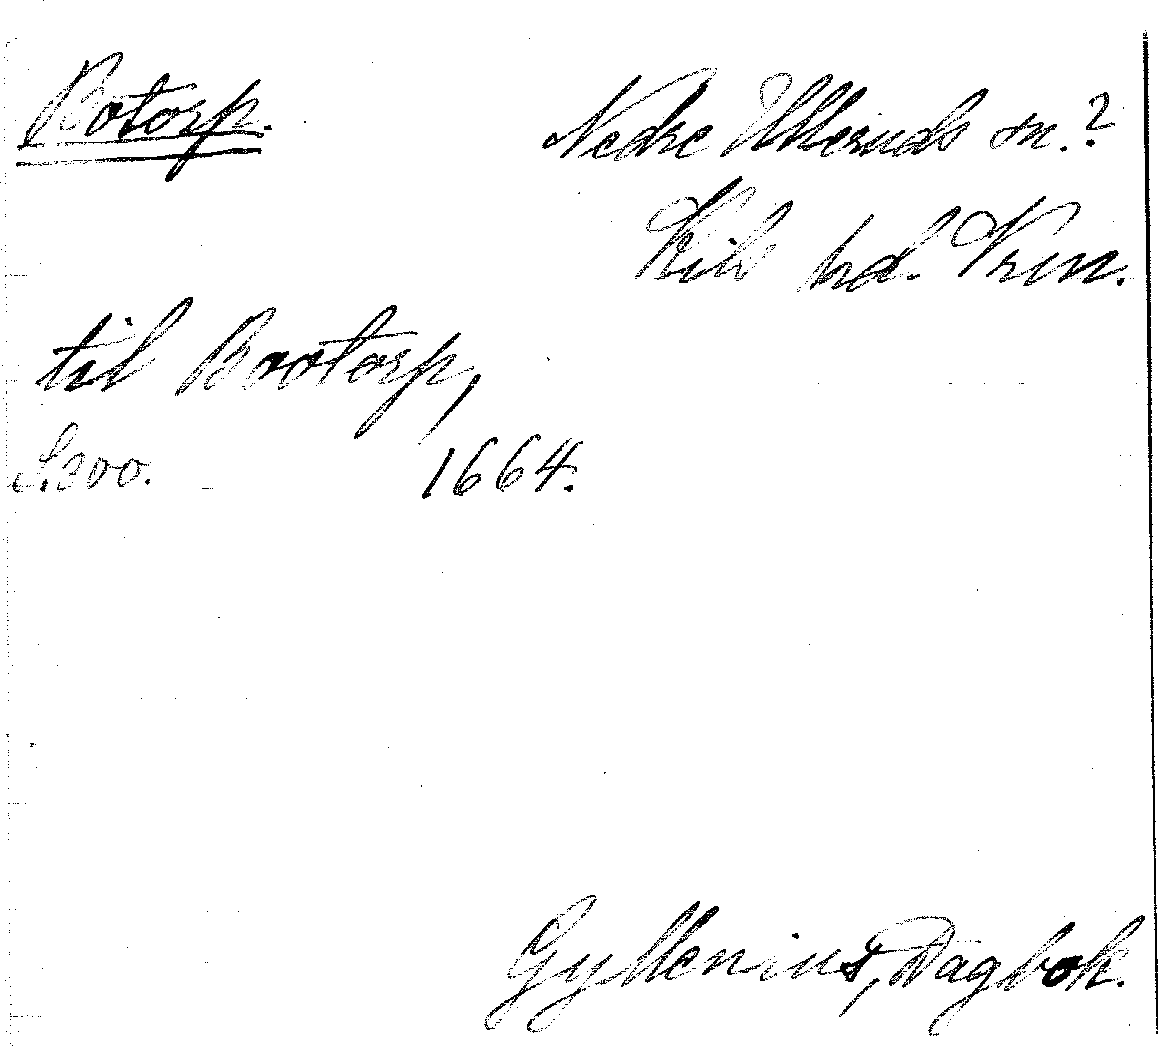 Botorp.
Nedre Ulleruds sn.?
Kils hd. Vrm.
til Bootorp,
S. 200. 1664.
Gyllenius, Dagbok.